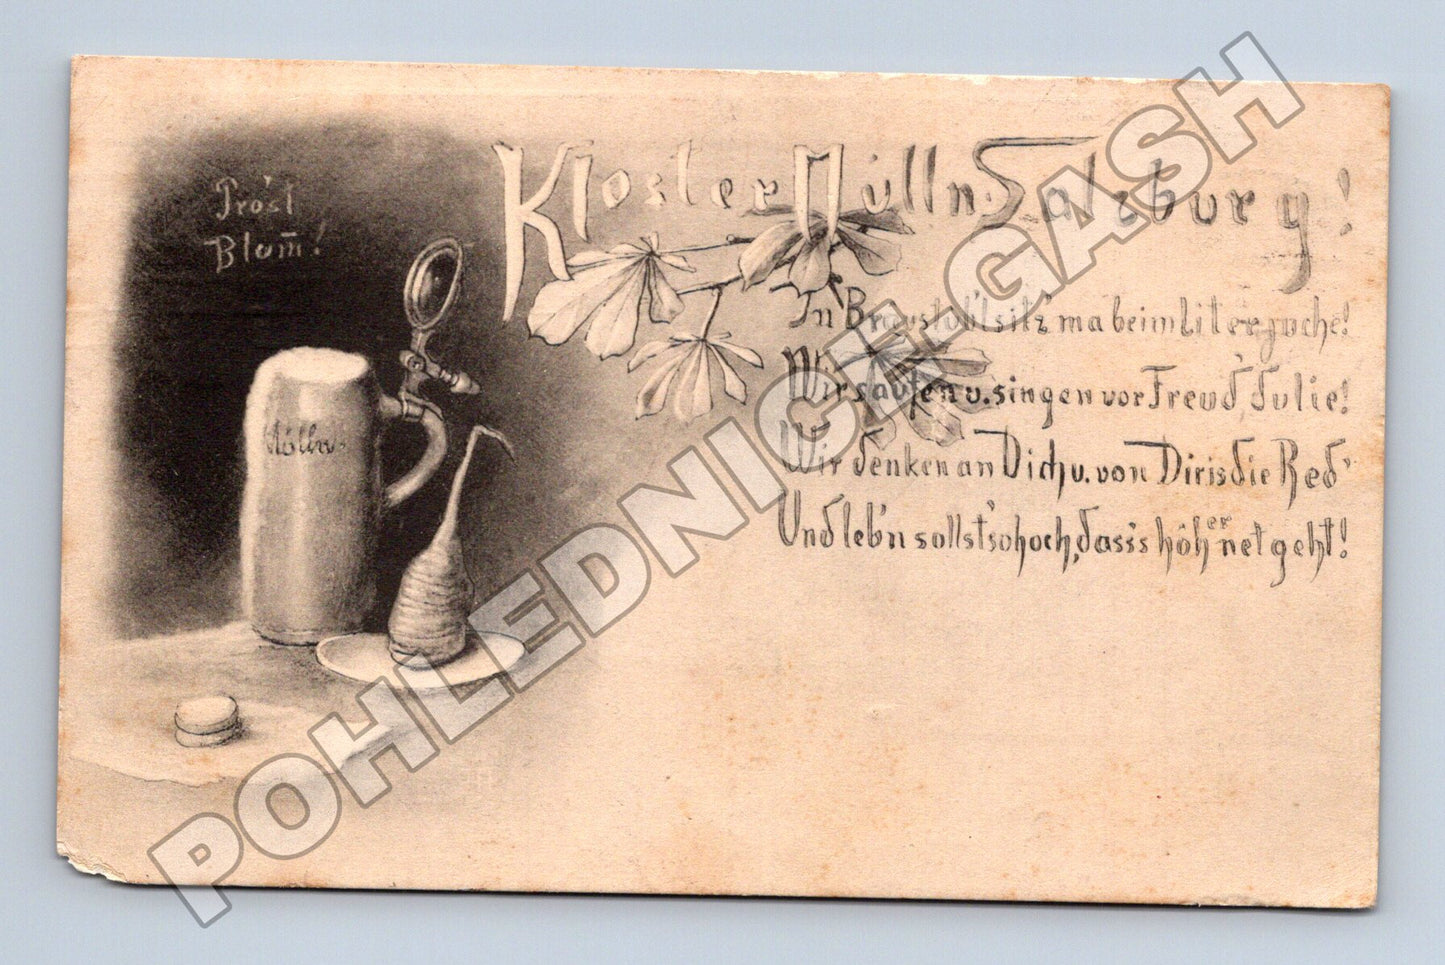 Pros't
Blum̄!
Kloster Mülln. Salzburg!
Mölln.
In Braustüb'l sitz' ma beim Liter juche!
Wir saufen u. singen vor Freud, Dulie!
Wir denken an Dich u. von Dir is die Red'
Und leb'n sollst' so hoch, dass's höher net geht!
POHLEDNICE-GASH